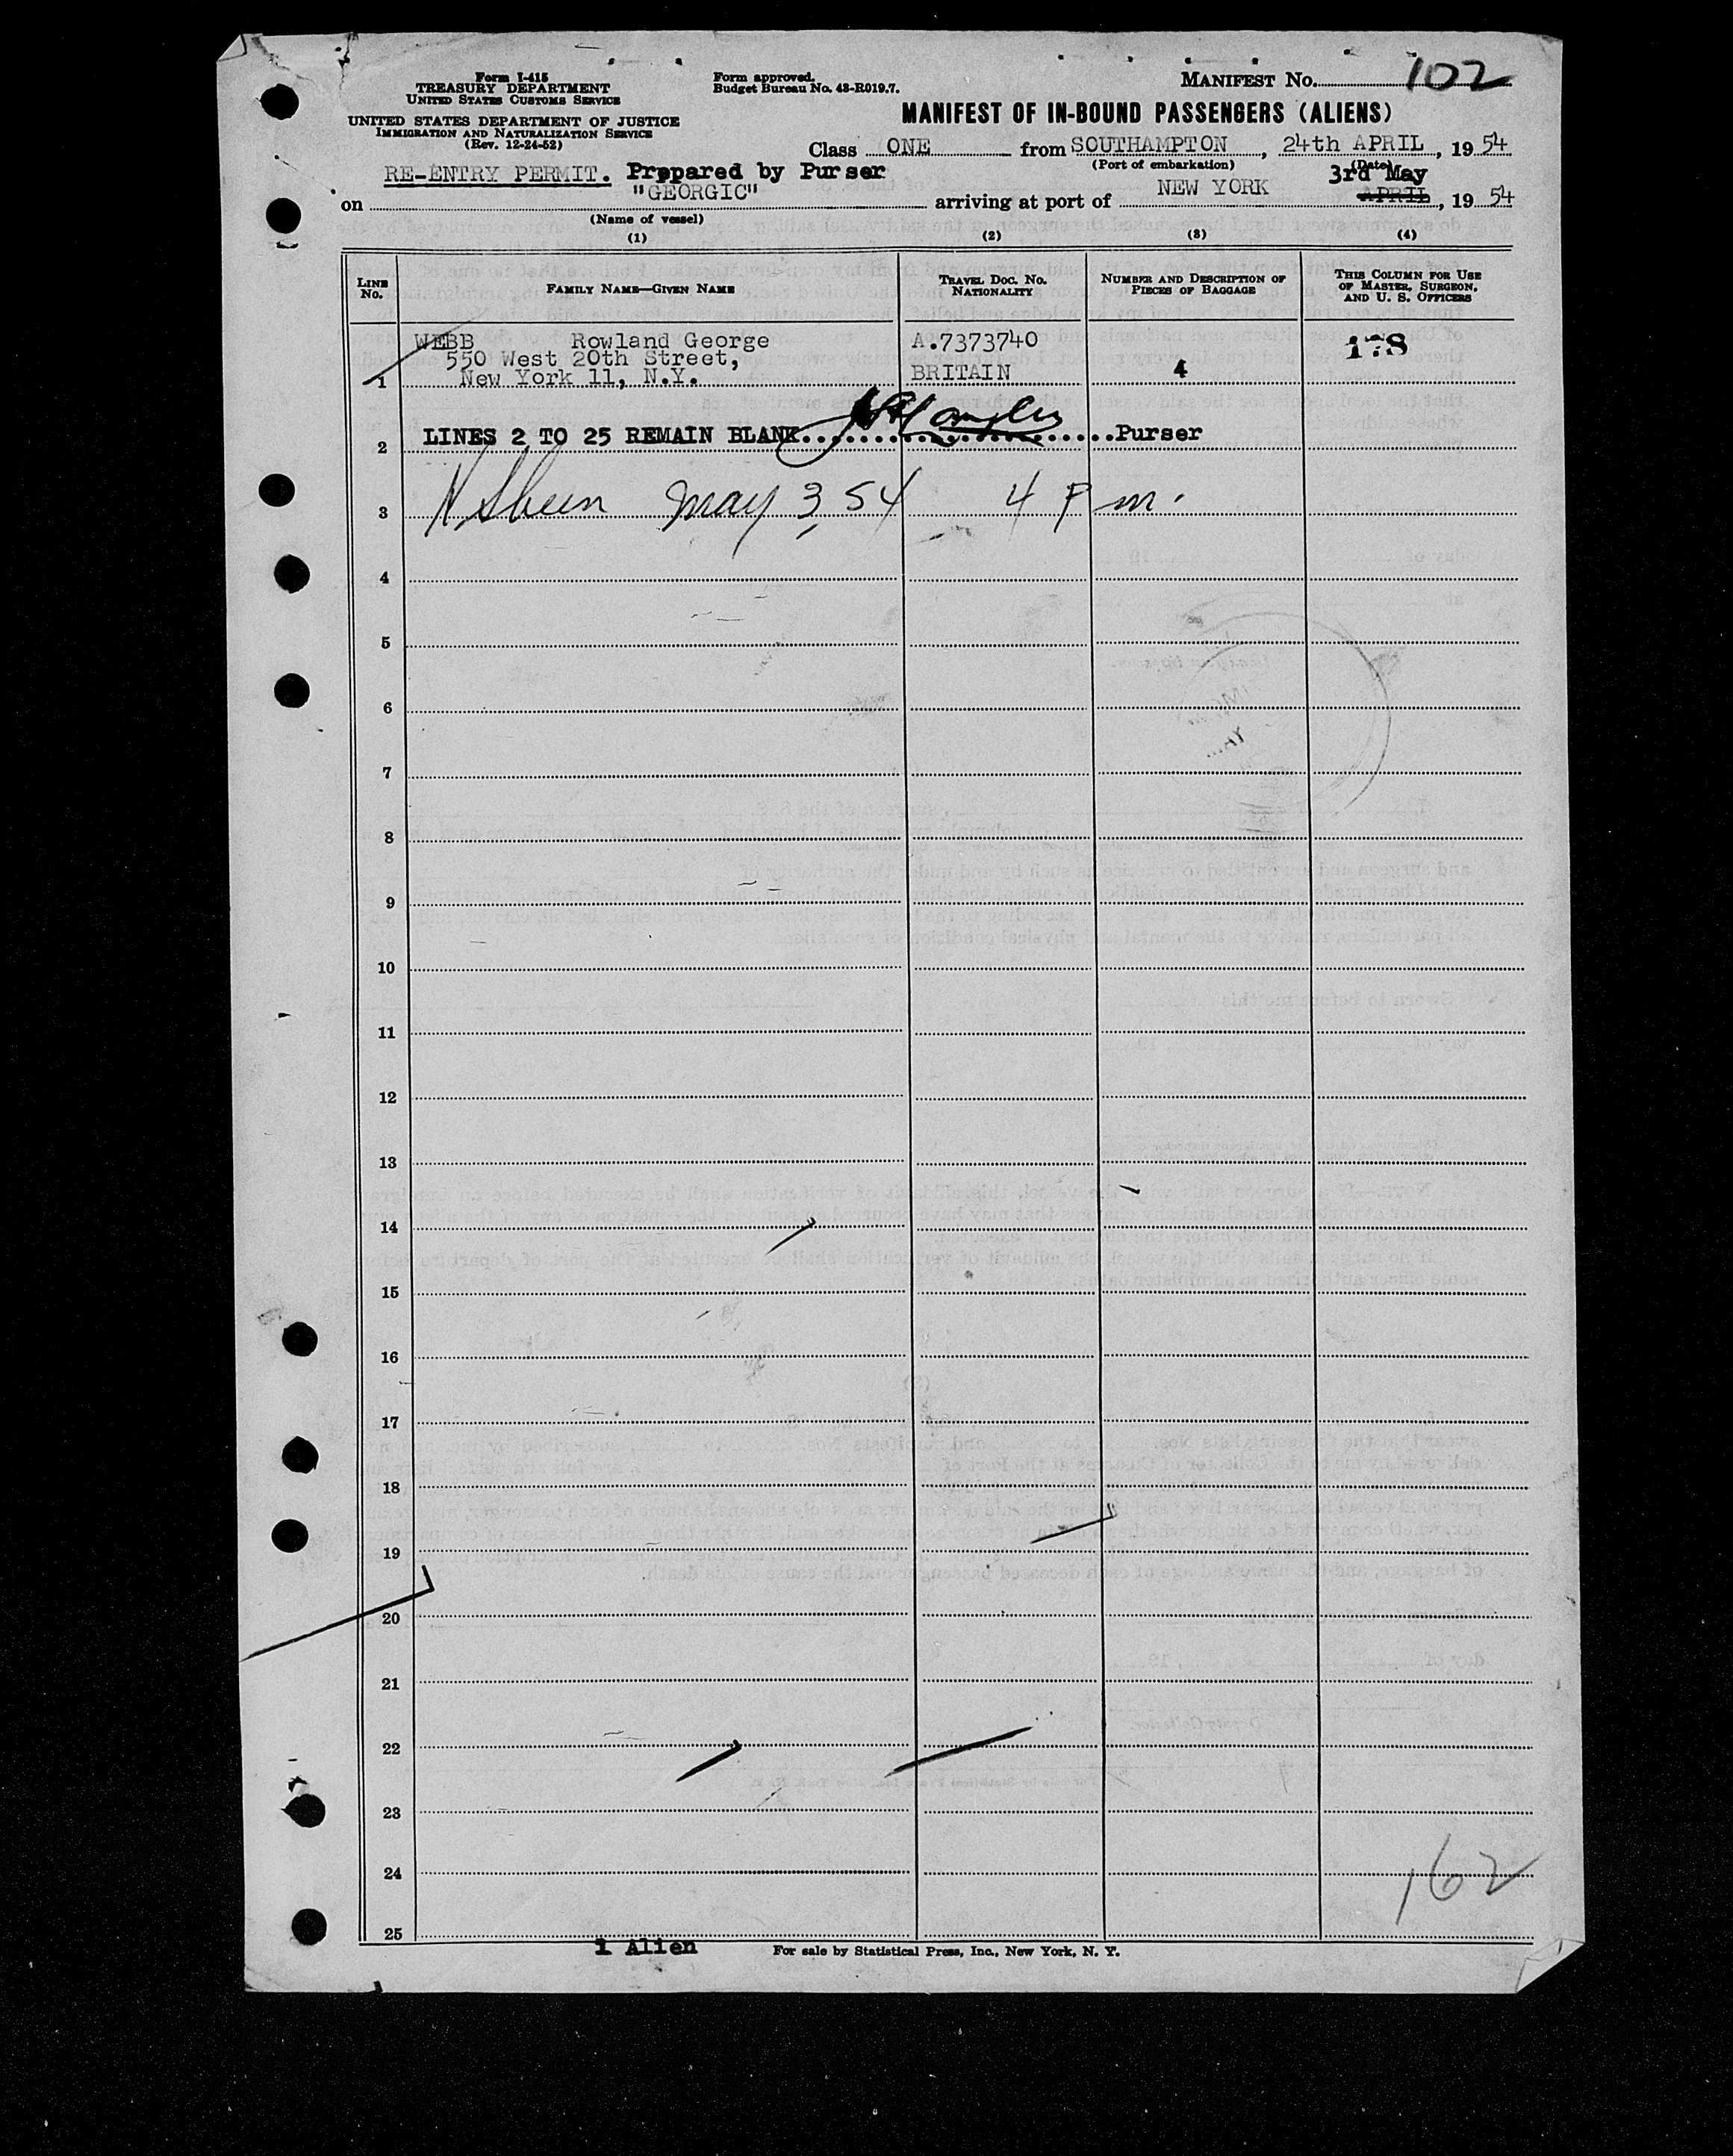 Form I-415
TREASURY DEPARTMENT
UNITED STATES CUSTOMS SERVICE
UNITED STATES DEPARTMENT OF JUSTICE
IMMIGRATION AND NATURALIZATION SERVICE
(Rev. 12-24-52)
Form approved.
Budget Bureau No. 43-R019.7.
MANIFEST NO. 102
MANIFEST OF IN-BOUND PASSENGERS (ALIENS)
Class ONE from SOUTHAMPTON, 24th APRIL, 1954
(Port of embarkation) (Date)
RE-ENTRY PERMIT. Prepared by Purser
3rd May
on "GEORGIC" arriving at port of NEW YORK APRIL, 1954
(Name of vessel)
(1) (2) (3) (4)
LINE No.
FAMILY NAME—GIVEN NAME
TRAVEL DOC. NO. NATIONALITY
NUMBER AND DESCRIPTION OF PIECES OF BAGGAGE
THIS COLUMN FOR USE OF MASTER, SURGEON, AND U. S. OFFICERS
WEBB Rowland George A.7373740 178
550 West 20th Street,
1 New York 11, N.Y. BRITAIN 4
2 LINES 2 TO 25 REMAIN BLANK. Purser
3 May 3, 54 4 Pm.
4
5
6
7
8
9
10
11
12
13
14
15
16
17
18
19
20
21
22
23
24
162
25
1 Alien
For sale by Statistical Press, Inc., New York, N. Y.